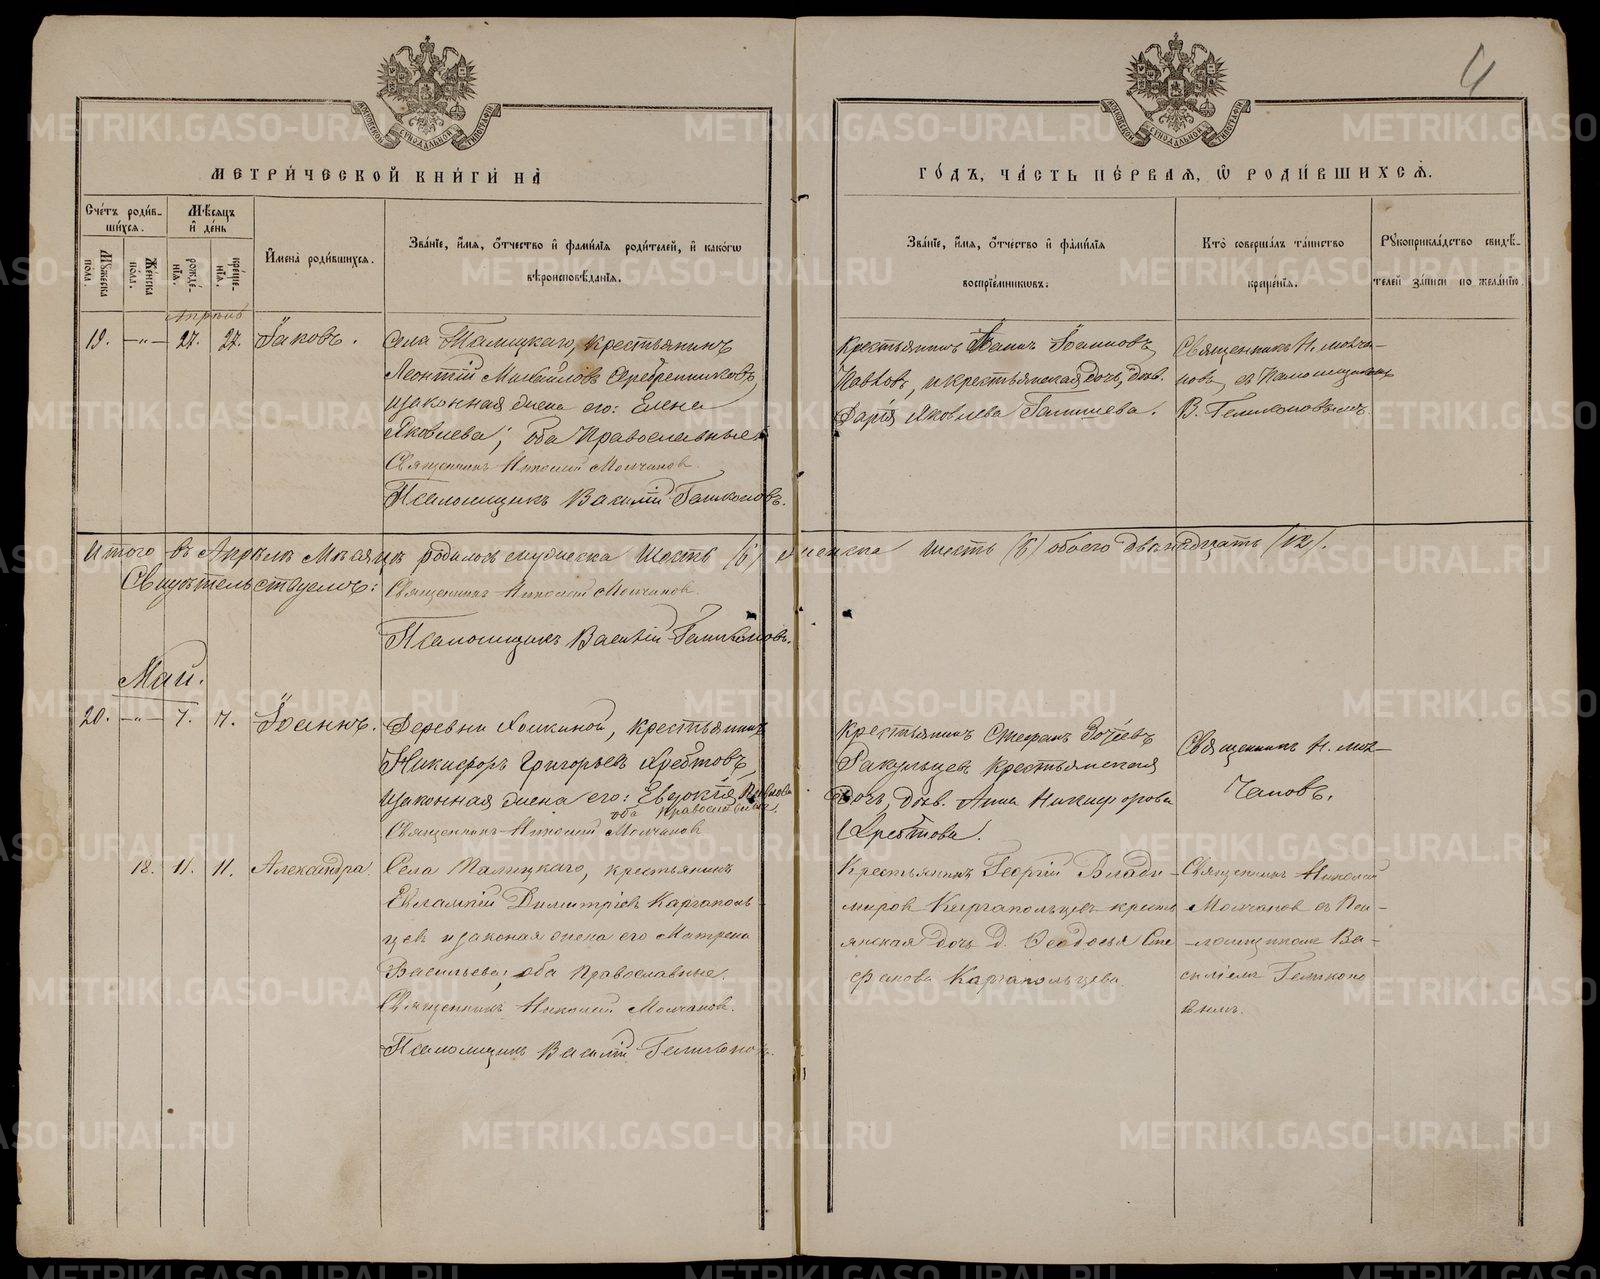 4
МЕТРИ́ЧЕСКОЙ КНИ́ГИ НА̀
ГО́ДЪ, ЧА́СТЬ ПЕ́РВАЯ, Ѿ РОДИ́ВШИХСѦ.
Сче́тъ роди́в-
ши́хсѧ.
Мѣ́сѧцъ
и де́нь
Мꙋ́жеска пола.
Же́нска пола.
рожде́-
нїѧ.
креще́-
нїѧ.
И҆мена̀ роди́вшихсѧ.
Зва́нїе, и҆́мѧ, ѻ҆́тчество и҆ фами́лїѧ роди́телей, и҆ како́гѡ
вѣроисповѣ́данїѧ.
Зва́нїе, и҆́мѧ, ѻ҆́тчество и҆ фами́лїѧ
воспрїе́мниковъ.
Кто̀ соверша́лъ та́инство
креще́нїѧ.
Рꙋкоприкла́дство свидѣ́-
телей за́писи по жела́нїю.
Апрѣль
19. —"— 27. 27. Іаковъ.
Села Талицкаго, крестьянинъ
Леонтій Михайловъ Серебренниковъ,
и законная жена его: Елена
Яковлева; оба Православные.
Священникъ Николай Молчанов.
Псаломщикъ Василій
Крестьянинъ Іоанновъ
и крестьянская дочь, дѣв.
Дарія Яковлева
Священникъ Н. Молча-
новъ, съ Псаломщикомъ
В.
Итого въ Апрѣлѣ Мѣсяцѣ родилось мужеска шесть (6) женска шесть (6) обоего двѣнадцать (12).
Свидѣтельствуемъ: Священникъ Николай Молчанов.
Псаломщикъ Василій
Май.
20. —"— 7. 7. Іоаннъ.
Деревни крестьянинъ
Никифоръ Григорьевъ Хребтовъ,
и законная жена его: Евдокія
оба православные.
Священникъ Николай Молчанов
Крестьянинъ Стефанъ
крестьянская
дочь, дѣв. Анна Никифорова
Хребтова.
Священникъ Н. Мол-
чановъ.
18. 11. 11. Александра.
Села Талицкаго, крестьянинъ
Евлампій Димитріевъ Каргаполь-
цевъ и законая жена его Матрена
Васильева; оба Православные.
Священникъ Николай Молчанов.
Псаломщикъ Василій
Крестьянинъ Георгій Влади-
міров Каргапольцевъ кресть
янская дочь д. Ѳеодосья Сте
фанова Каргапольцева.
Священникъ Николай
Молчанов съ Пса-
ломщикомъ Ва-
силіемъ
вымъ.
METRIKI.GASO-URAL.RU